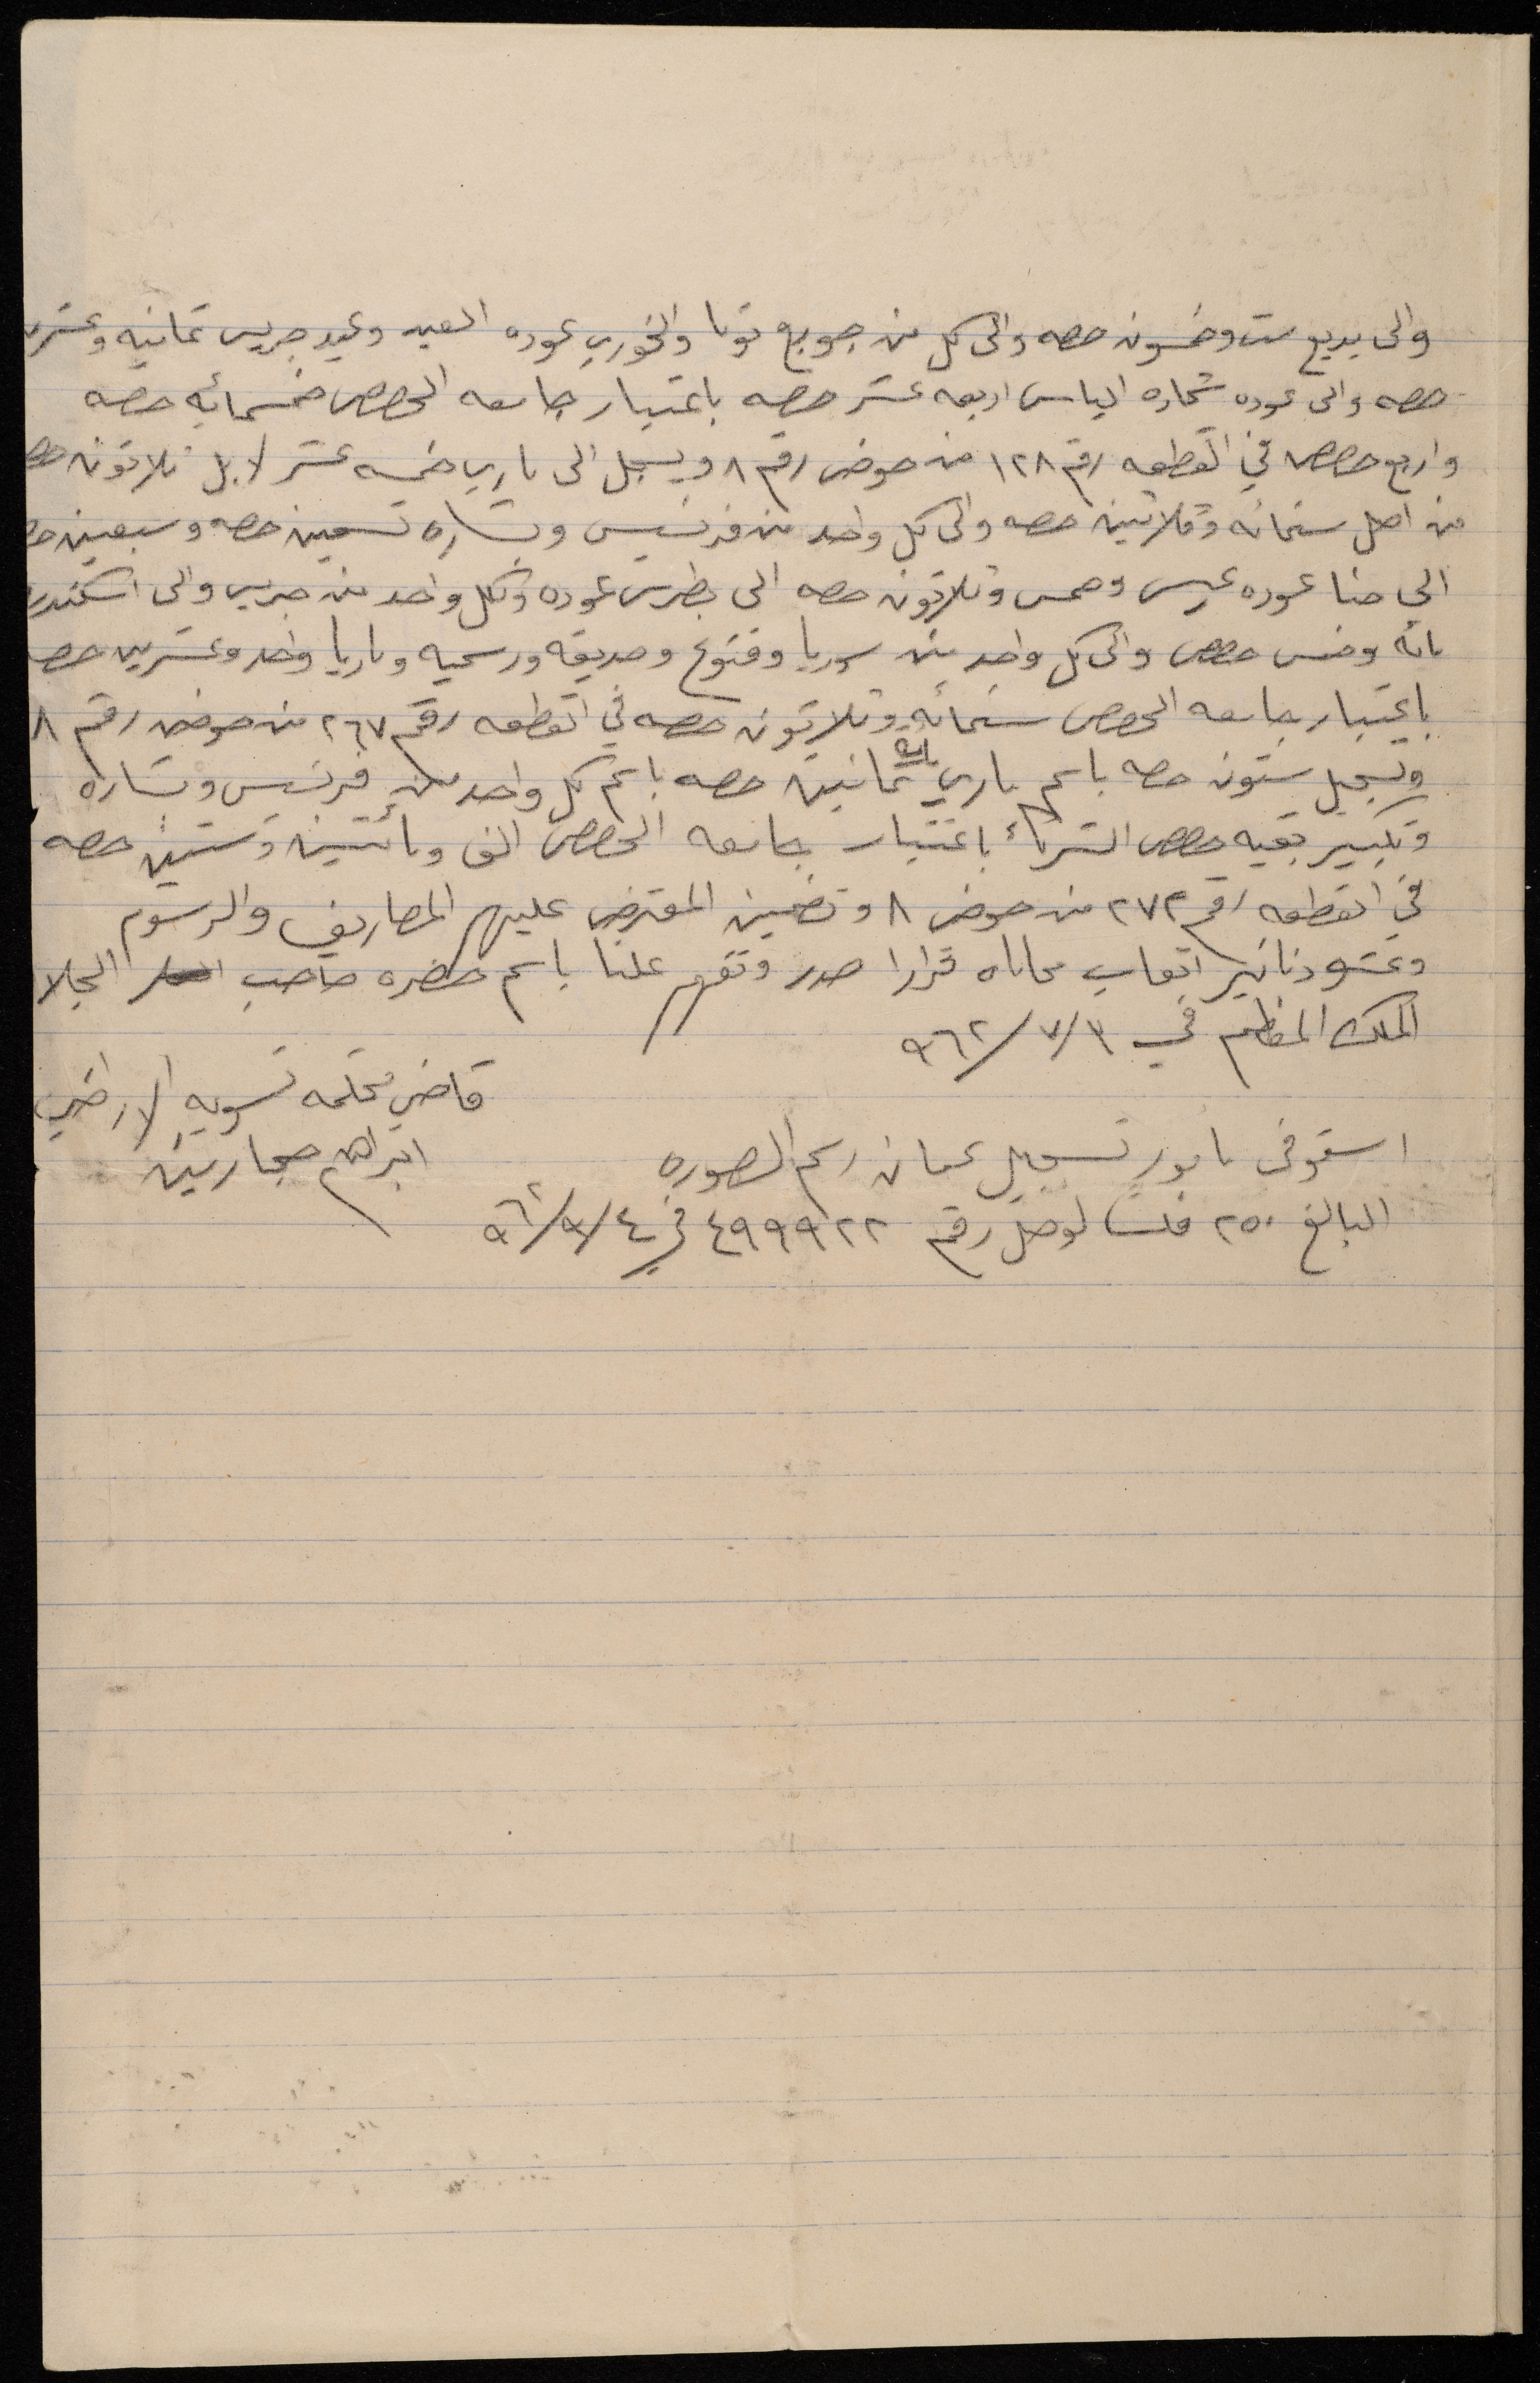 والى بديع ست وخمسون حصه والى كل من جويع توما والخوري عوده العيد وعيد جريس ثمانيه وعشر
حصه والى عوده شحاده الياس اربعه عشر حصه باعتبار جامعه الحصص خمسمائه حصه
واربع حصص في القطعه رقم ١٢٨ من حوض رقم ٨ ويسجل الى ماري خمسه عشر لا بل ثلاثون حصه
من اصل ستمائه وثلاثين حصه والى كل واحد من فرنسيس وبشاره تسعين حصه وسبعين حصه
الى حنا عوده عيسى وخمس وثلاثون حصه الى بطرس عوده ولكل واحد من جريس والى اسكندر
مائه وخمس حصص والى كل واحد من سوريا وفتوح وصديقه ورسميه وماريا واحد وعشرين حصه
باعتبار جامعه الحصص ستمائه وثلاثون حصه في القطعه رقم ٢٦٧ من حوض رقم ٨
وتسجيل ستون حصه باسم ماري مائه ثمانين حصه باسم كل واحد من فرنسيس وبشاره
وتكبير بقيه حصص الشركاء باعتبار جامعه الحصص الف ومائتين وستين حصه
في القطعه رقم ٢٧٢ من حوض ٨ وتضمين المعترض عليهم المصاريف والرسوم
وعشره دنانير اتعاب محاماه قرارا صدر وتفهم علنا باسم حضره صاحب الجلا
الملك المعظم في ٣/٧/٩٦٢
قاضي محكمه تسويه الاراضي
ابراهيم حجازين
استوفى مامور تسجيل عمان رسم الصوره
البالغ ٢٥٠ فلسا لوصل رقم ٤٩٩٩٢٢ في ٤/٩/٩٦٢